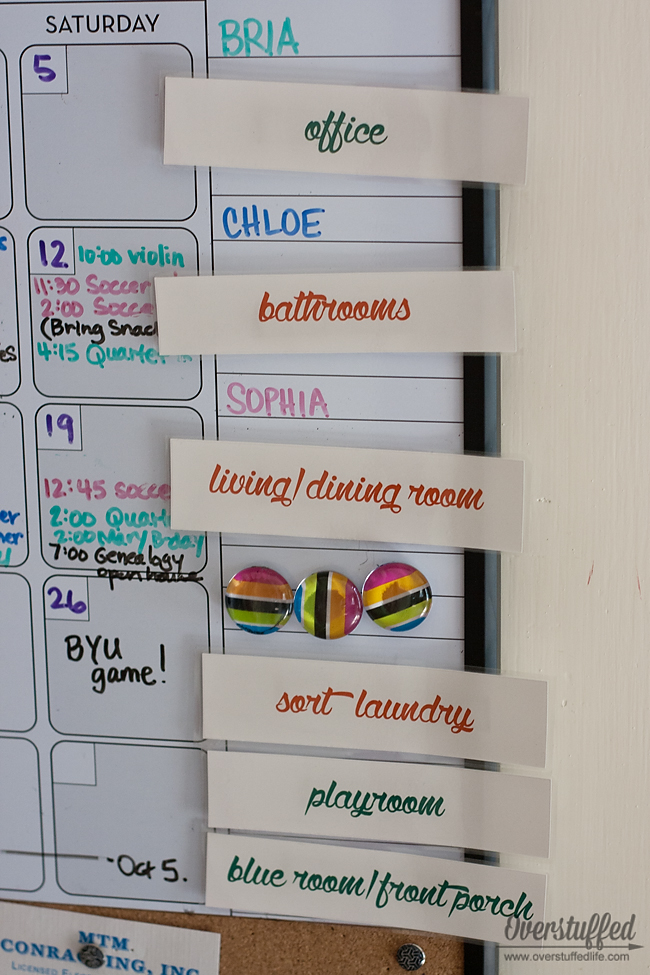 SATURDAY
BRIA
5
office
CHLOE
12 10:00 violin
11:30 Soccer
2:00
(Bring
4:15
bathrooms
SOPHIA
19
living/dining room
12:45
2:00
2:00 Mary B-day
7:00 Genealogy
open house
26
BYU
game!
sort laundry
playroom
- Oct 5.
blue room/front porch
MTM.
INC
LICENSED
Overstuffed
www.overstuffedlife.com